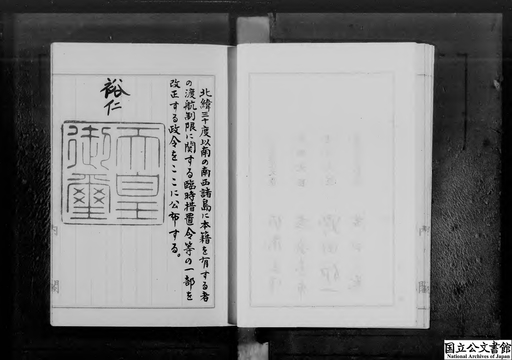 北緯三十度以南の南西諸島に本籍を有する者
の渡航制限に関する臨時措置令等の一部を
改正する政令をここに公布する。
裕仁
天皇
御璽
国立公文書館
National Archives of Japan